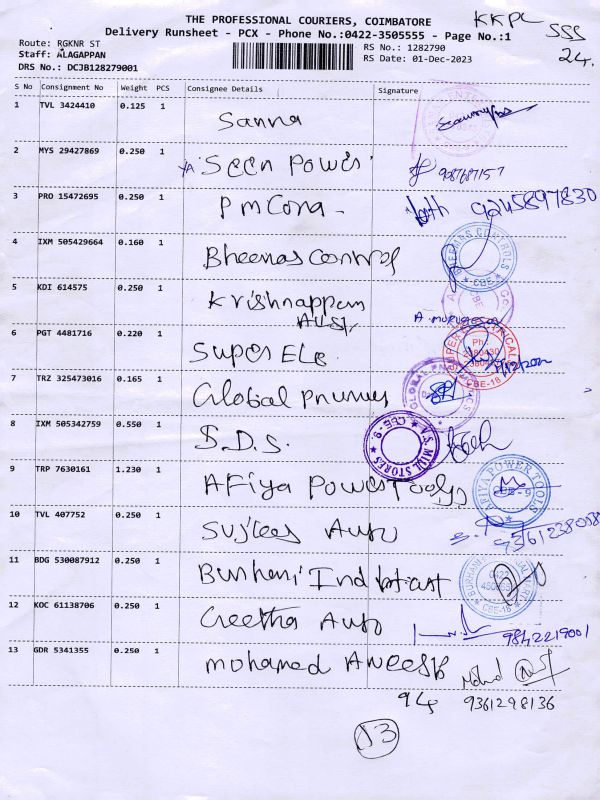 THE PROFESSIONAL COURIERS, COIMBATORE
Delivery Runsheet - PCX - Phone No.:0422-3505555 - Page No.:1
KKPC
SSS
24.
Route: RGKNR ST
Staff: ALAGAPPAN
DRS No.: DCJB128279001
RS No.: 1282790
RS Date: 01-Dec-2023
S No Consignment No Weight PCS Consignee Details Signature
1 TVL 3424410 0.125 1 Sanna
2 MYS 29427869 0.250 1 Seen Power 9087687157
3 PRO 15472695 0.250 1 PM Cona - 9245897830
4 IXM 505429664 0.160 1 Bheemas Control BHEEMAS CONTROLS CBE
5 KDI 614575 0.250 1 Krishnappan A. MURUGESAN
6 PGT 4481716 0.220 1 Super Ele. CBE-18
7 TRZ 325473016 0.165 1 Global GLOBAL
8 IXM 505342759 0.550 1 S.D.S. V.S. MILL STORES CBE-9
9 TRP 7630161 1.230 1 Afiya Power Tools AFIYA POWER TOOLS CBE-9
10 TVL 407752 0.250 1 Auto
11 BDG 530087912 0.250 1 Burhani Ind CBE-18
12 KOC 61138706 0.250 1 Geetha Auto 9842219001
13 GDR 5341355 0.250 1 Mohamed Aneesh Mohd
94 9361298136
13